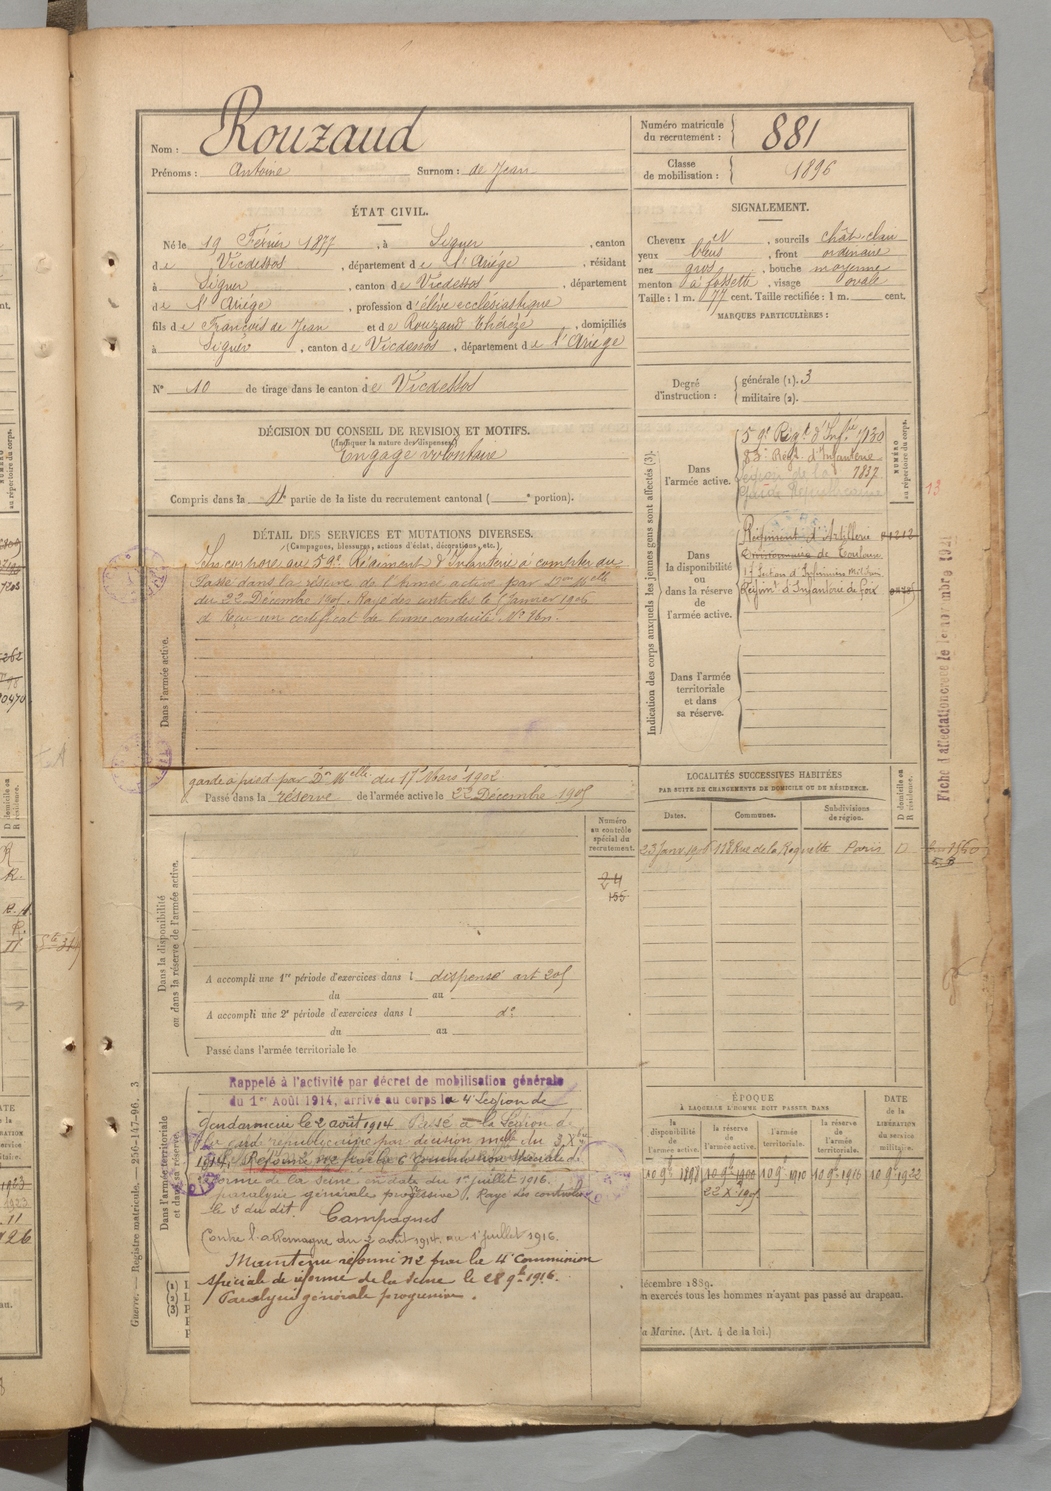 Nom : Rouzaud
Prénoms : Antoine Surnom : de Jean
Numéro matricule du recrutement : 881
Classe de mobilisation : 1896
ÉTAT CIVIL.
Né le 19 Février 1877, à Siguer, canton
de Vicdessos, département de l'Ariège, résidant
à Siguer, canton de Vicdessos, département
de l'Ariège, profession d'élève ecclésiastique
fils de François de Jean et de Rouzaud Thérèze, domiciliés
à Siguer, canton de Vicdessos, département de l'Ariège
N° 10 de tirage dans le canton de Vicdessos
SIGNALEMENT.
Cheveux N, sourcils chât. clair
yeux bleus, front ordinaire
nez gros, bouche moyenne
menton à fossette, visage ovale
Taille : 1 m. 77 cent. Taille rectifiée : 1 m. cent.
MARQUES PARTICULIÈRES :
Degré d'instruction : générale (1). 3
militaire (2).
DÉCISION DU CONSEIL DE REVISION ET MOTIFS.
(Indiquer la nature des dispenses)
Engagé volontaire
Compris dans la 4 partie de la liste du recrutement cantonal ( e portion).
DÉTAIL DES SERVICES ET MUTATIONS DIVERSES.
(Campagnes, blessures, actions d'éclat, décorations, etc.)
Dans l'armée active.
Incorporé au 59e Régiment d'Infanterie à compter du
Passé dans la réserve de l'armée active par Don Mlle
du 22 Décembre 1905. Rayé des contrôles le 1 Janvier 1906
Reçu un certificat de bonne conduite
garde à pied par Dn Mlle du 17 Mars 1902
Passé dans la réserve de l'armée active le 22 Décembre 1905
Indication des corps auxquels les jeunes gens sont affectés (3).
NUMÉRO au répertoire du corps.
Dans l'armée active.
59e Régt d'Infrie 1130
83e Régt d'Infanterie 1837
Légion de la
Garde Républicaine
Dans la disponibilité ou dans la réserve de l'armée active.
Régiment d'Artillerie
17 Section d'Infirmiers Militaires
Régimt d'Infanterie de Foix
Dans l'armée territoriale et dans sa réserve.
13
Fiche d'affectation créée le 1er novembre 1921
LOCALITÉS SUCCESSIVES HABITÉES
PAR SUITE DE CHANGEMENTS DE DOMICILE OU DE RÉSIDENCE.
Dates. Communes. Subdivisions de région. D domicile ou R résidence.
23 Janv 1906 118 Rue de la Roquette Paris D
Numéro au contrôle spécial du recrutement.
155
Dans la disponibilité ou dans la réserve de l'armée active.
A accompli une 1re période d'exercices dans l dispensé art 205
du au
A accompli une 2e période d'exercices dans l do
du au
Passé dans l'armée territoriale le
Dans l'armée territoriale et dans sa réserve.
Rappelé à l'activité par décret de mobilisation générale
du 1er Août 1914, arrivé au corps le 4e Légion de
Gendarmerie le 2 août 1914. Passé à la Légion de
la garde républicaine par décision mlle du 3 Xbre
1914. Réformé n°2 par la 6e commission spéciale de
réforme de la Seine en date du 1er juillet 1916.
paralysie générale progressive. Rayé des contrôles
le 2 du dit. Campagnes
Contre l'Allemagne du 2 août 1914 au 1 juillet 1916.
Maintenu réformé n°2 par la 4e Commission
spéciale de réforme de la Seine le 28 9bre 1916.
Paralysie générale progressive.
ÉPOQUE
À LAQUELLE L'HOMME DOIT PASSER DANS
DATE de la LIBÉRATION du service militaire.
la disponibilité de l'armée active. la réserve de l'armée active. l'armée territoriale. la réserve de l'armée territoriale.
10 9bre 1898 10 9bre 1900 10 9bre 1910 10 9bre 1916 10 9bre 1922
22 Xbre 1905
décembre 1889.
n exercés tous les hommes n'ayant pas passé au drapeau.
la Marine. (Art. 4 de la loi.)
Guerre. — Registre matricule. — 256-147-96. 3